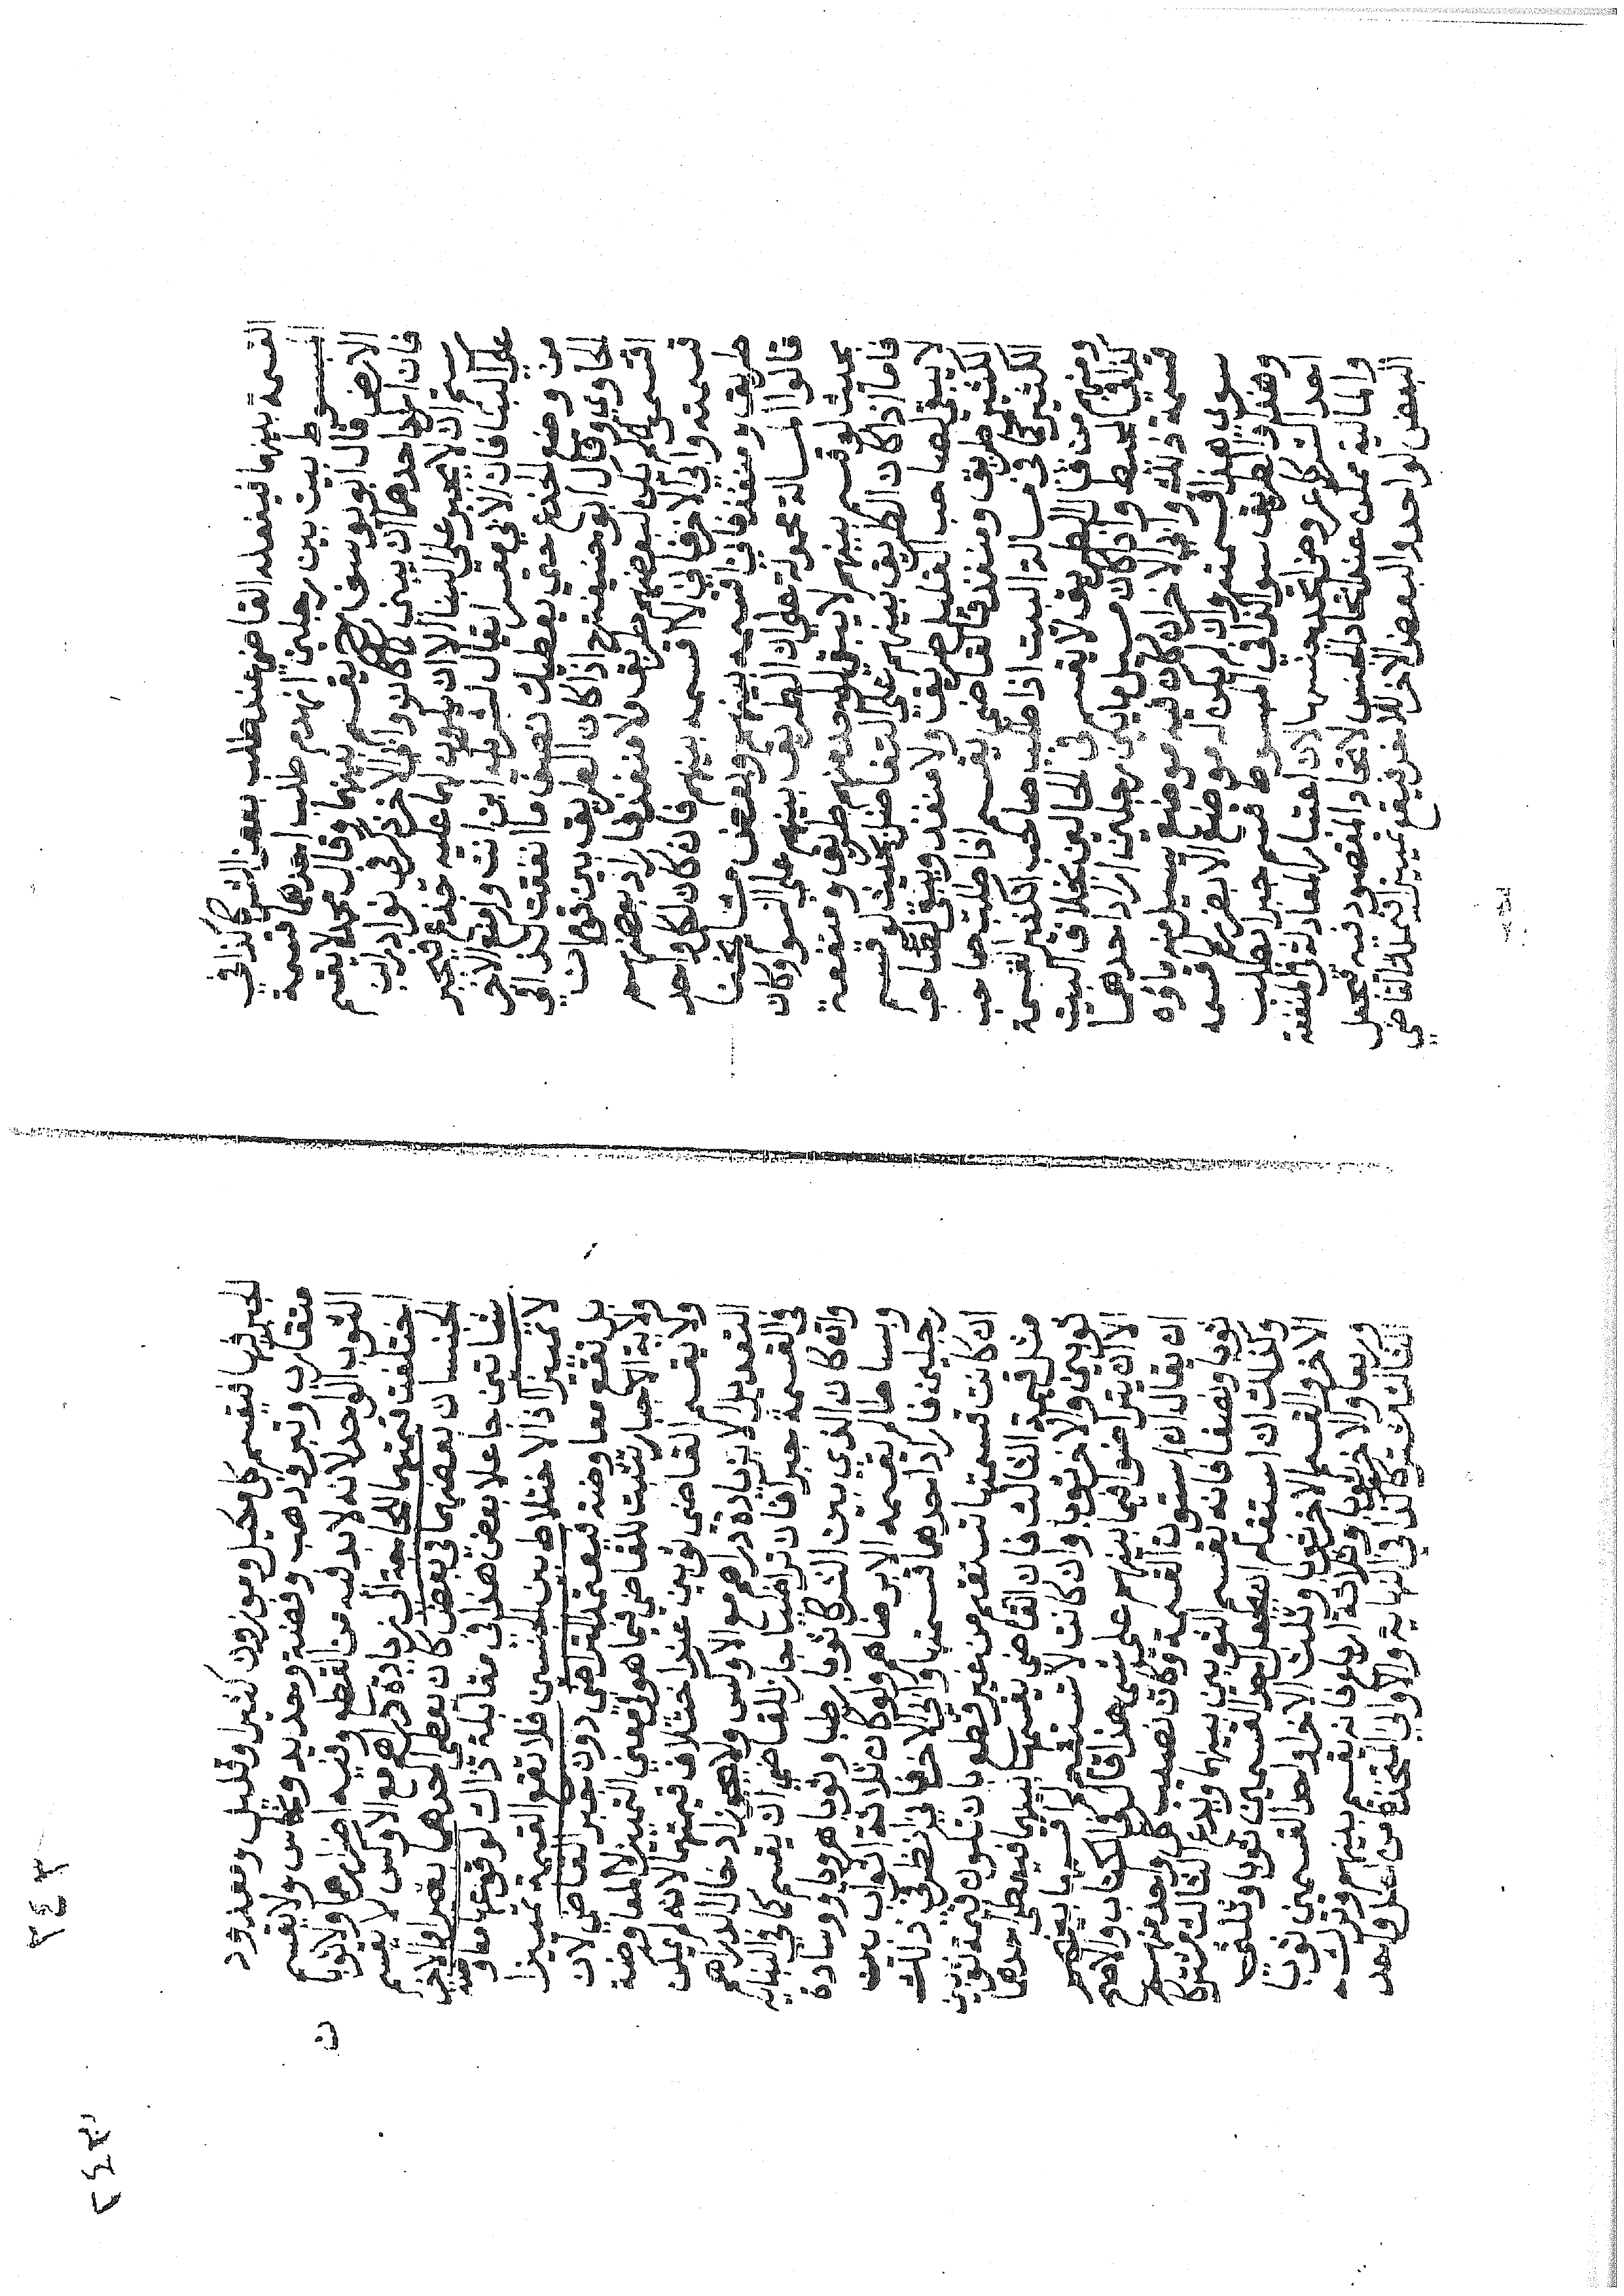 القسمة بينهما فيفعله القاضي عند طلب بعض الشركا كذا في
المبسوط بيت بين رجلين انهدم طلب احدهما قسمة
الارض قال ابو يوسف رح يقسم بينهما وقال محمد لا يقسم
فان اراد احدهما ان يبني كما كان وابى الاخر ذكر في نوادر ابن
رستم ان لا يجبر على البنا الا ان يكون لهما عليه جذوع فيجبر
على البنا فان الابي معسرا يقال لشريكه ابن انت وامنع الاخر
من وضع الجذوع حتى يعطيك نصف ما انفقت كذا في
الحاوي وقال ابو حنيفة رح اذا كان الطريق بين قوم ان
اقتسموه لم يكن لبعضهم طريق ولا منفذ فاراد بعضهم
قسمته وابى الاخر فاني لا اقسمه بينهم فان كان لكل واحد
طريق ومنفذ فاني اقسمه بينهم وبعض مشايخنا
قالوا المسالة محمولة على ان الطريق بينهم على السوا وكان
بحيث لو قسم بينهم لا يبقى لواحد منهم طريق ومنفعة
فاما اذا كان الطريق بينهم على التفاضل بحيث لو قسم
لا يبقى لصاحب القليل طريق ولا منفذ ويبقى لصاحب
الكثير طريق ومنفذ فالقاضي يقسم اذا طلب صاحب
الكثير كما في مسالة البيت اذا طلب صاحب الكثير القسمة
ومنهم من قال الطريق لا يقسم في الحالين بخلاف البيت
كذا في المحيط واذا كان مسيل ما بين رجلين اراد احدهما
قسمة ذلك وابى الاخر فان كان فيه موضع يسيل منه ماؤه
سوى هذا قسمته وان لم يكن له موضع الا بضرر لم اقسمه
وهذا والطريق سوا كذا في المبسوط قسم جبرا بطلب
احد الشركا عروض اتحد جنسها لان اعتبار المعادلة في المنفعة
والمالية ممكن عند اتحاد الجنس لاتحاد المقصود فيه فيحصل
البعض لواحد والبعض للاخر فيقع تمييزا فيملك القاضي
الجبر فيها فيقسم كل مكيل وموزون كثير او قليل ومعدود
متقارب وتبر وذهب وفضة وحديد ونحاس ولا يقسم
الثوب الواحد لانه لا بد فيه من القطع وفيه اضرار ولا ثوبا ن
اختلفت قيمتهما للحاجة الى زيادة دراهم مع الاوكس لا يقسم
الجنسان بعضهما في بعض كان يعطي احدهما بقرا والاخر
شاتين جاعلا بعض هذا في مقابلة ذاك لوقوعها معاوضة
لا تمييزا اذ لا اختلاط بين الجنسين فلا تقع القسمة تمييزا
بل تقع معاوضة فيعتمد التراضي دون جبر القاضي لان
ولاية الاجبار تثبت للقاضي فيما هو في معنى التمييز لا المعاوضة
ولا يقسم القاضي ثوبين عند اختلاف قيمتهما لانه لم يمكن
التعديل الا بزيادة دراهم مع الاوكس ولا يجوز ادخال الدراهم
في القسمة جبرا فان تراضيا جاز للقاضي ان يقسم كما في النهاية
وان كان الذي بين الشركا ثوبا زطيا وثوبا هرويا ووسادة
وبساطا لم يقسمه الا برضاهم ولو كان ثلاثة اثواب بين
رجلين فاراد احدهما قسمتها وابى الاخر فاني انظر في ذلك
ان كانت قسمتها تستقيم من غير قطع بان تكون قيمة ثوبين
مثل قيمة الثالث فان القاضي يقسمها بينهما فيعطي احدهما
ثوبين والاخر ثوبا وان كانت لا تستقيم لم اقسمها بينهم
الا ان يتراضوا فيما بينهم على شي هذا قال في الكتاب والاصح
ان يقال ان استوت القسمة وكان نصيب كل واحد منهم
ثوبا ونصفا فانه يقسم الثوبين بينهما ويدع الثالث مشتركا
وكذلك ان استقام ان يجعل احد القسمين ثوبا وثلثي
الاخر والقسم الاخر ثوبا وثلث الاخر او احد القسمين ثوبا
وربعا والاخر ثوبا وثلاثة ارباع فانه يقسم بينهم ويترك
الثالث مشتركا كذا في النهاية والاواني المتخذة من اصل واحد
٢٤٣
٢٤٣